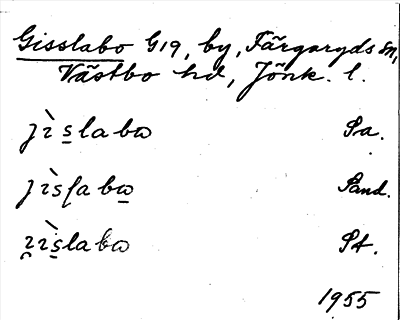 Gisslabo G19, by, Färgaryds sn,
Västbo hd, Jönk. l.
jìslabω Sa.
jìsſabω Sand.
ı̯ìslabω St.
1955